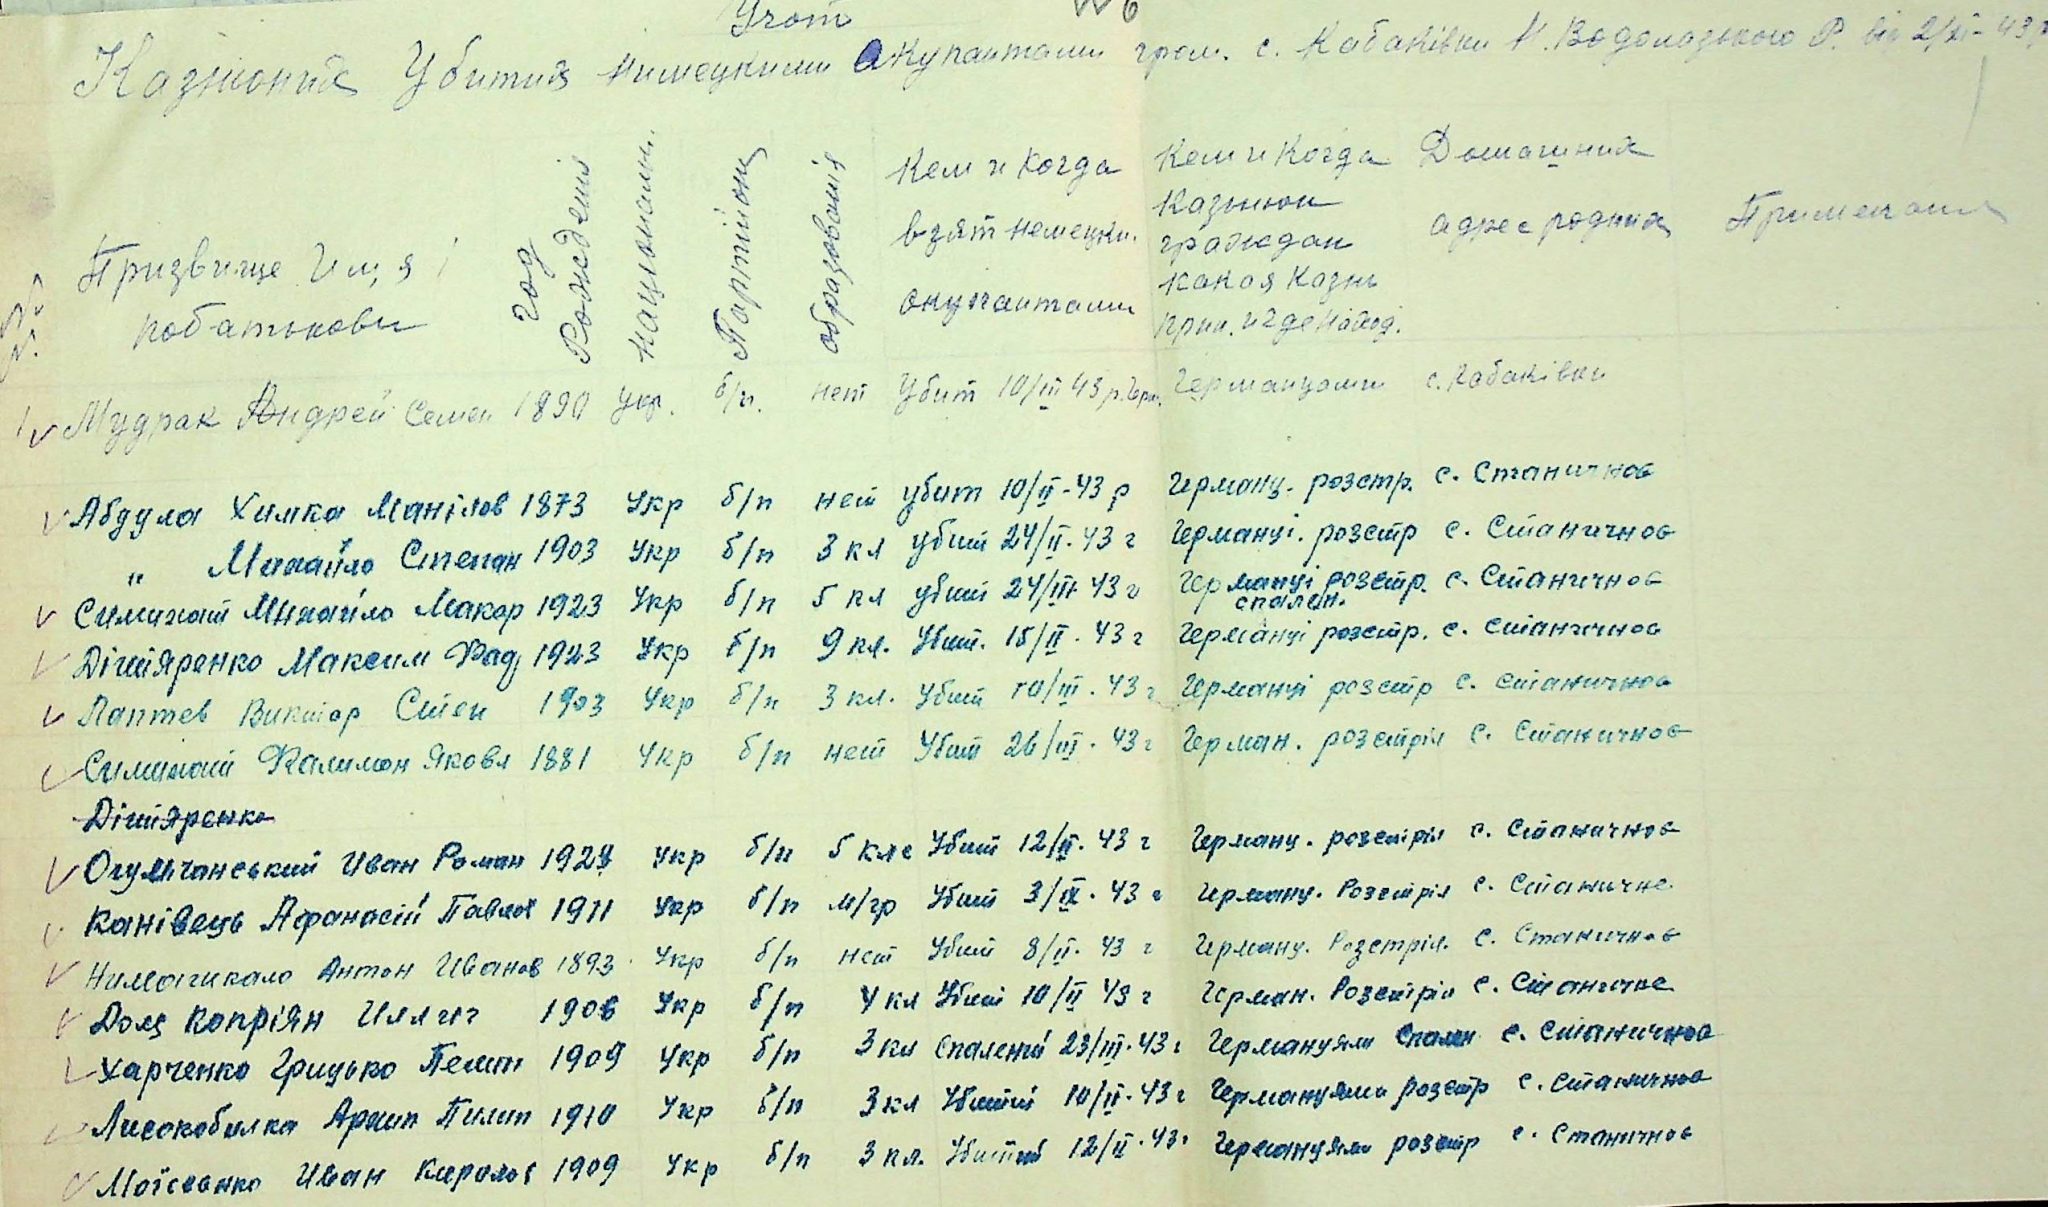 № 6
Учот
Казньоних Убитих Нимецкими Окупантами гром. с. Кабаківки Н. Водолазького Р. від 2/XI-43 р
Призвище Им,я і побатькови
Год Рождения
Национальн.
Партійон
образованія
Кем и когда взят немецки. окупантами
Кем и Когда Казньон граждан какая Казнь прин. и где наход.
Домашний адрес родних
Примечание
1 Мудрак Андрей Семен 1890 Укр. б/п. нет Убит 10/III 43 р. Герм. Германцами с. Кабаківки
Абдула Химка Манілов 1873 Укр б/п нет убит 10/II-43 р Германц. розстр. с. Станичнов
" Михайло Степан 1903 Укр б/п 3 кл убит 24/II. 43 г Германці. розстр с. Станичнов
Симинат Михайло Макар 1923 Укр б/п 5 кл убит 24/III 43 г Германці розстр. спален. с. Станичнов
Дігтяренко Максим Фад 1923 Укр б/п 9 кл. Убит. 15/II. 43 г Германці розстр. с. Станичнов
Лаптев Виктор Степ 1903 Укр б/п 3 кл. Убит 10/III. 43 г Германці розстр с. Станичнов
Симинат Филимон Яковл 1881 Укр б/п нет Убит 26/III. 43 г Герман. розстріл с. Станичнов
Дігтяренко
Огульчанський Иван Роман 1924 Укр б/п 5 клс Убит 12/II. 43 г Германц. розстріл с. Станичнов
Канівець Афанасій Павлов 1911 Укр б/п м/гр Убит 3/IX. 43 г Германц. Розстріл с. Станичне
Нимагикало Антон Иванов 1893 Укр б/п нет Убит 8/II. 43 г Германц. Розстріл. с. Станичнов
Доля Копріян Иллич 1906 Укр б/п 4 кл Убит 10/II 43 г Герман. Розстріл с. Станичне
Харченко Грицько Пелип 1909 Укр б/п 3 кл Спалений 23/III. 43 г Германцями Спален с. Станичнов
Лисокобилка Архип Пилип 1910 Укр б/п 3 кл Убитий 10/II. 43 г Германцями розстр с. Станичнов
Моісеенко Иван Кирилов 1909 Укр б/п 3 кл. Убитий 12/II. 43 г Германцями розстр с. Станичнов